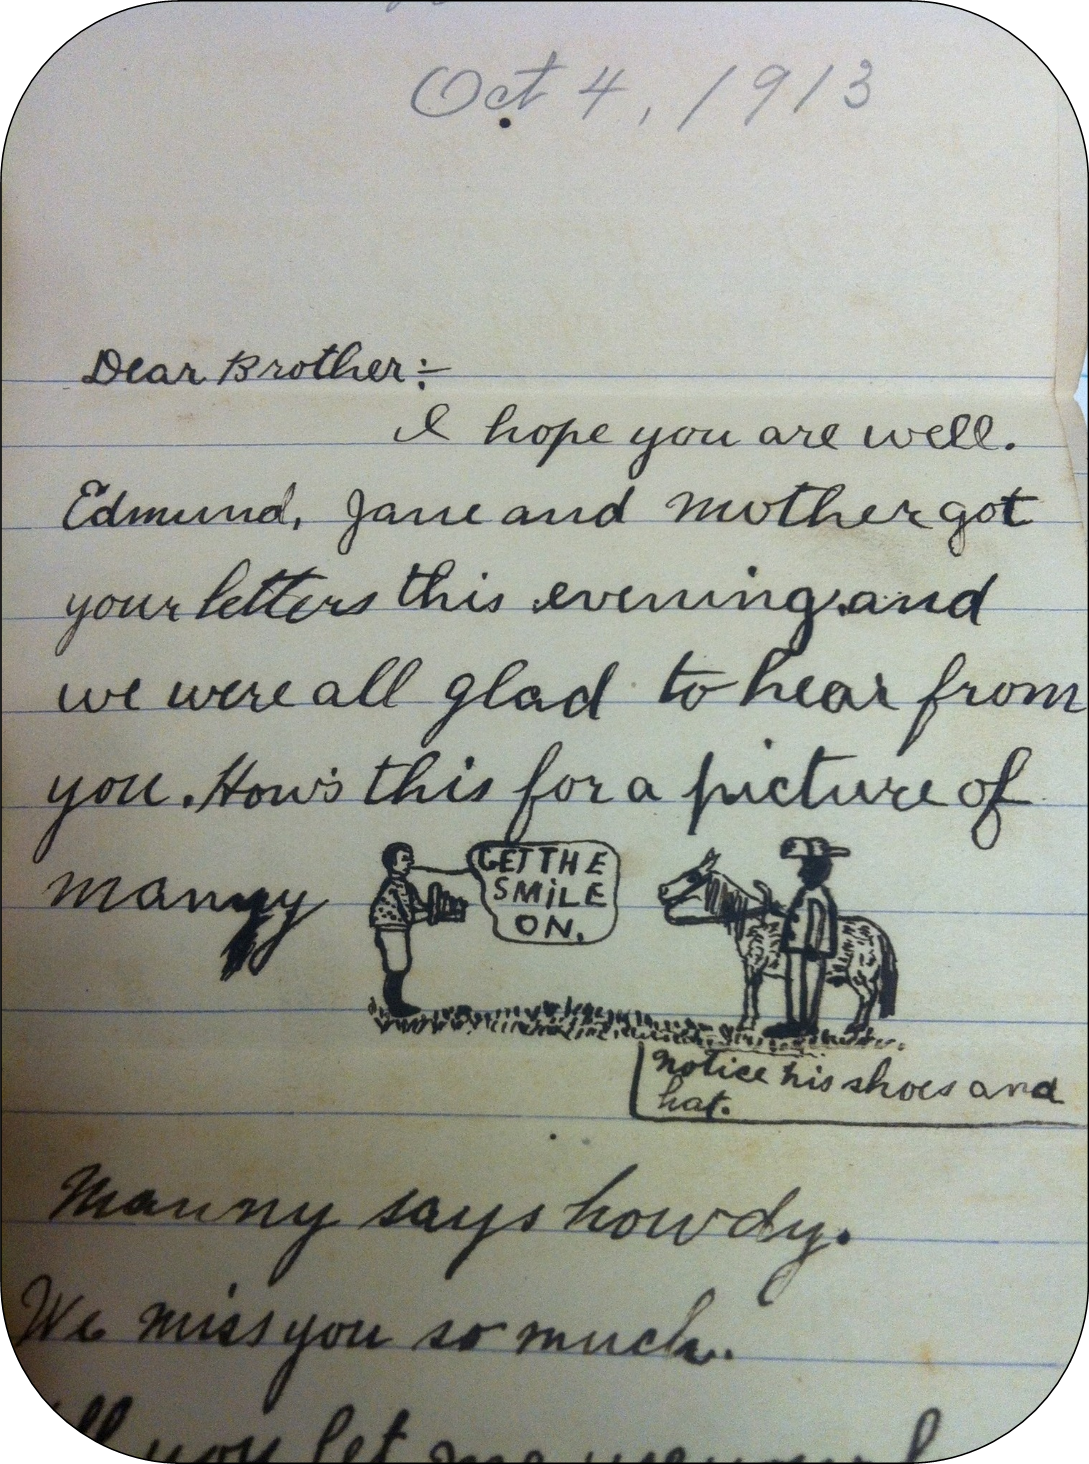 Oct 4, 1913
Dear Brother:-
I hope you are well.
Edmund, Jane and Mother got
your letters this evening and
we were all glad to hear from
you. How's this for a picture of
manny
GET THE
SMiLE
ON.
Notice his shoes and
hat.
Manny says howdy.
We miss you so much.
you let me